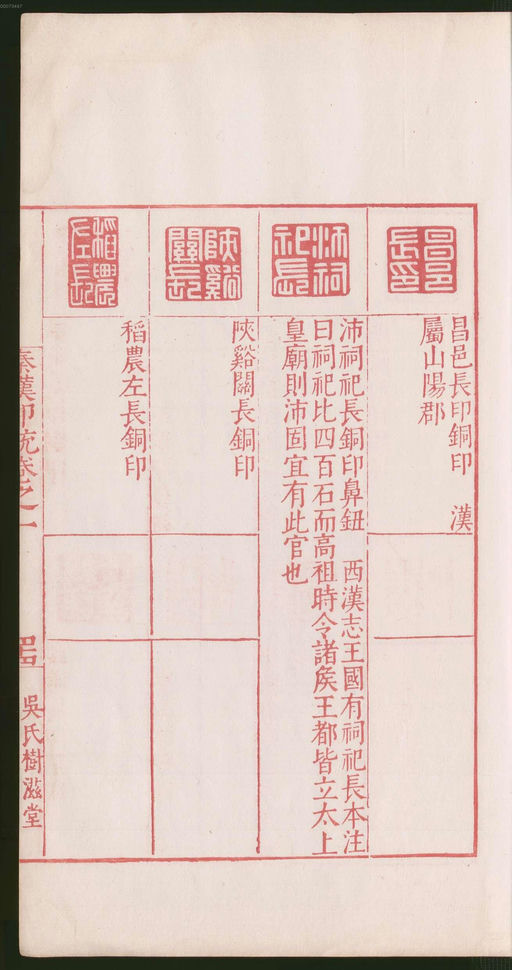 00073447
昌邑長印
昌邑長印銅印 漢
屬山陽郡
沛祠祀長
沛祠祀長銅印鼻鈕 西漢志王國有祠祀長本注
曰祠祀比四百石而高祖時令諸侯王都皆立太上
皇廟則沛固宜有此官也
陝谿關長
陝谿關長銅印
稻農左長
稻農左長銅印
秦漢印統卷之一
吳氏樹滋堂